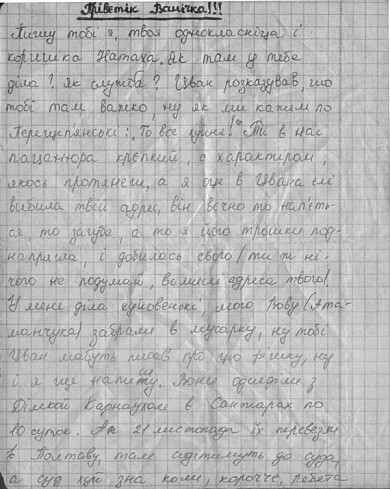 Прівєтік Ванічка!!!
Пишу тобі я, твоя однокласніца і
коришка Натаха. Як там у тебе
діла? Як служба? Іван розказував, шо
тобі там важко ну як ми кажем по
"То все
! Ти в нас
пацанюра крєпкий, с характером,
якось протянеш, а я оце в Івана єлі
вибила твій адрис, він вечно то напʼєть-
ся, то загубе, а то я його трошки под-
напрягла, і добилась свого (ти ж ні-
чого не подумай, адреса твого)
У мене діла, мого Вову (Ата-
манчука) забрали в мусарку, ну тобі
Іван мабуть писав про цю фішку, ну
і я ще напишу. Вони одсиділи з
Дімкой Карнаухом в Санжарах по
10 суток. Ак 21 листопада їх перевезли
в Полтаву, там сидітимуть до суда,
а суд зна коли, корочше, ребята